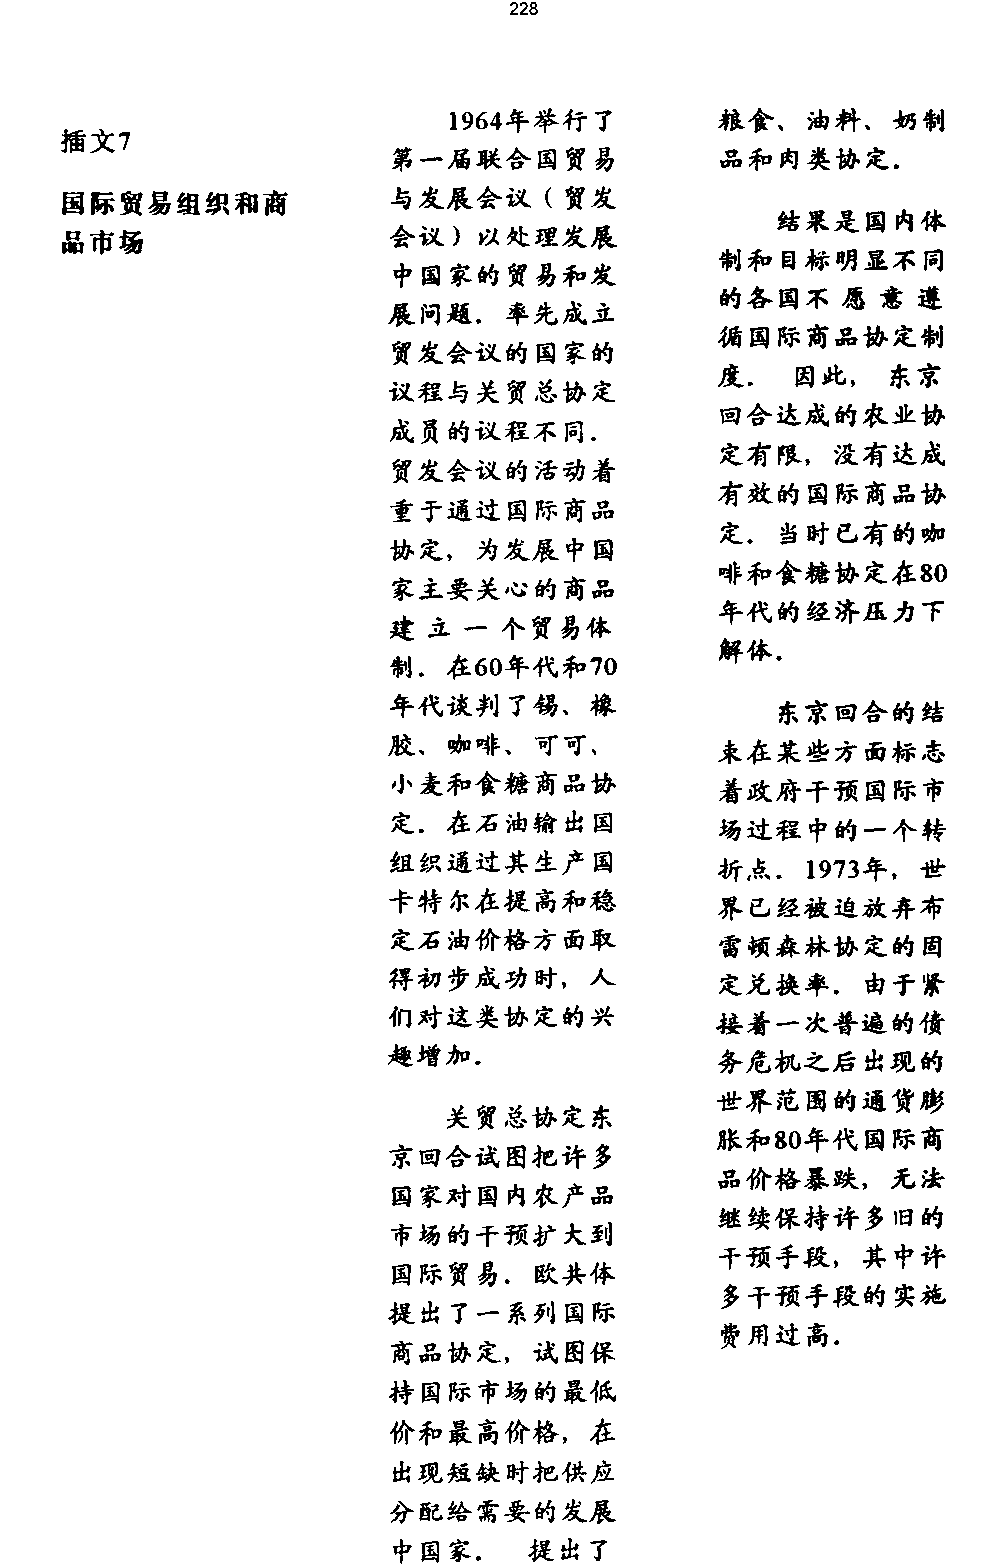 228
插文7
国际贸易组织和商
品市场
1964年举行了
第一届联合国贸易
与发展会议（贸发
会议）以处理发展
中国家的贸易和发
展问题．率先成立
贸发会议的国家的
议程与关贸总协定
成员的议程不同．
贸发会议的活动着
重于通过国际商品
协定，为发展中国
家主要关心的商品
建立一个贸易体
制．在60年代和70
年代谈判了锡、橡
胶、咖啡、可可、
小麦和食糖商品协
定．在石油输出国
组织通过其生产国
卡特尔在提高和稳
定石油价格方面取
得初步成功时，人
们对这类协定的兴
趣增加．
关贸总协定东
京回合试图把许多
国家对国内农产品
市场的干预扩大到
国际贸易．欧共体
提出了一系列国际
商品协定，试图保
持国际市场的最低
价和最高价格，在
出现短缺时把供应
分配给需要的发展
中国家． 提出了
粮食、油料、奶制
品和肉类协定．
结果是国内体
制和目标明显不同
的各国不愿意遵
循国际商品协定制
度． 因此， 东京
回合达成的农业协
定有限，没有达成
有效的国际商品协
定．当时已有的咖
啡和食糖协定在80
年代的经济压力下
解体．
东京回合的结
束在某些方面标志
着政府干预国际市
场过程中的一个转
折点．1973年，世
界已经被迫放弃布
雷顿森林协定的固
定兑换率．由于紧
接着一次普遍的债
务危机之后出现的
世界范围的通货膨
胀和80年代国际商
品价格暴跌，无法
继续保持许多旧的
干预手段，其中许
多干预手段的实施
费用过高．